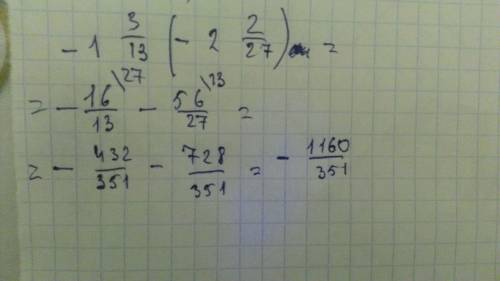 - 1 3/13 (- 2 2/27) =
= - 16/13 \27 - 56/27 \13 =
= - 432/351 - 728/351 = - 1160/351